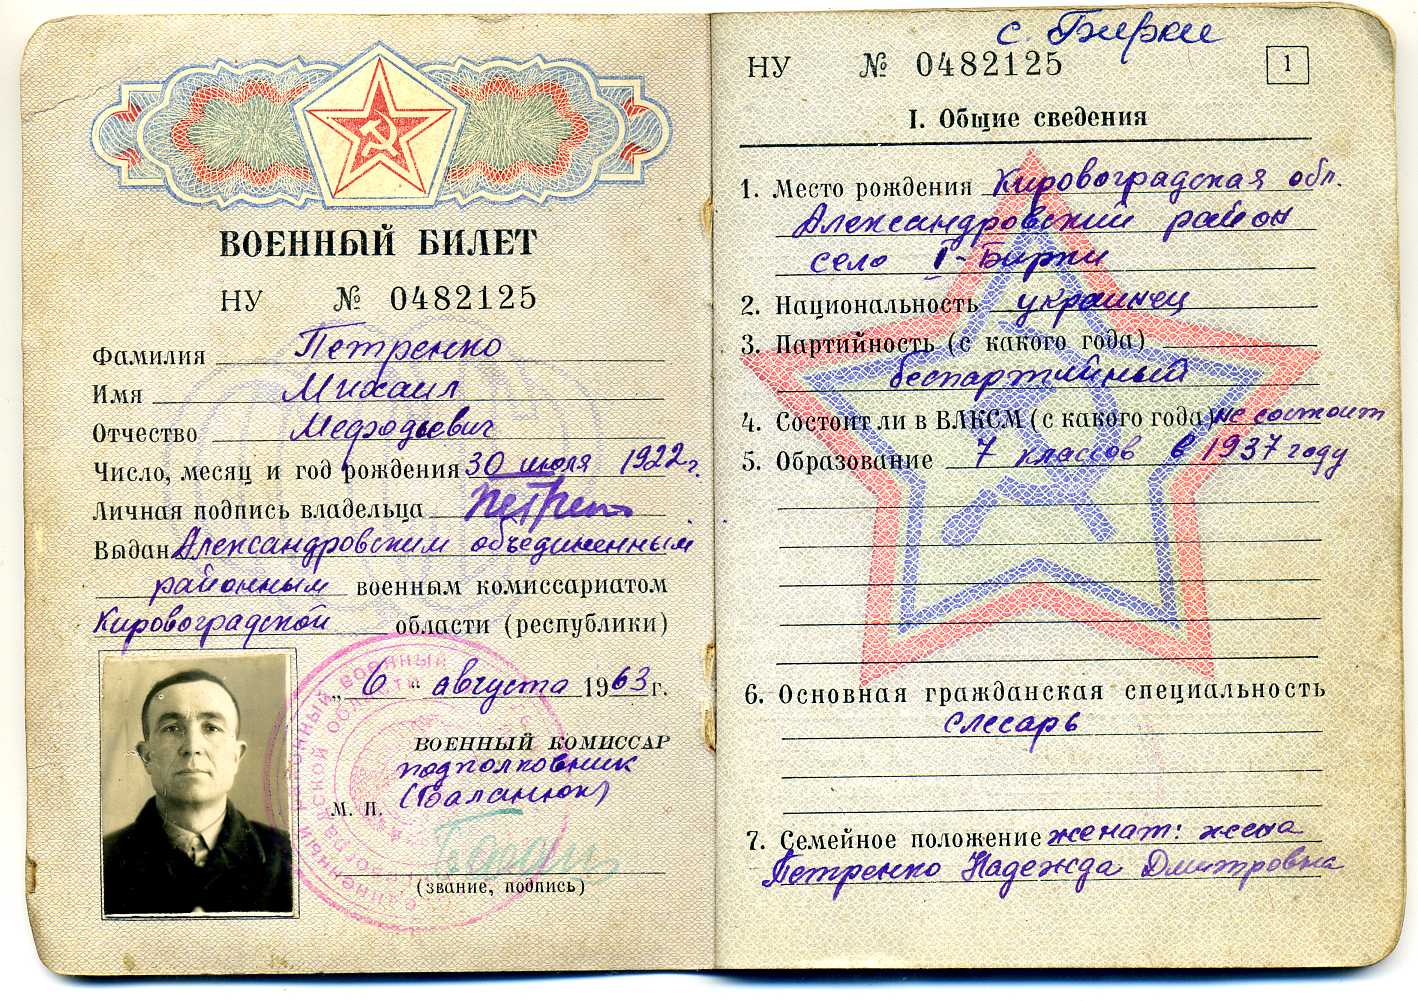 ВОЕННЫЙ БИЛЕТ
НУ № 0482125
Фамилия Петренко
Имя Михаил
Отчество Мефодьевич
Число, месяц и год рождения 30 июля 1922 г.
Личная подпись владельца Петрен
Выдан Александровским объединенным
районным военным комиссариатом
Кировоградской области (республики)
„ 6 “ августа 1963 г.
ВОЕННЫЙ КОМИССАР
подполковник
М. П. (Баланюк)
(звание, подпись)
с. Бирки
НУ № 0482125 1
I. Общие сведения
1. Место рождения Кировоградская обл.
Александровский район
село I-Бирки
2. Национальность украинец
3. Партийность (с какого года)
беспартийный
4. Состоит ли в ВЛКСМ (с какого года) не состоит
5. Образование 7 классов в 1937 году
6. Основная гражданская специальность
слесарь
7. Семейное положение женат: жена
Петренко Надежда Дмитровна